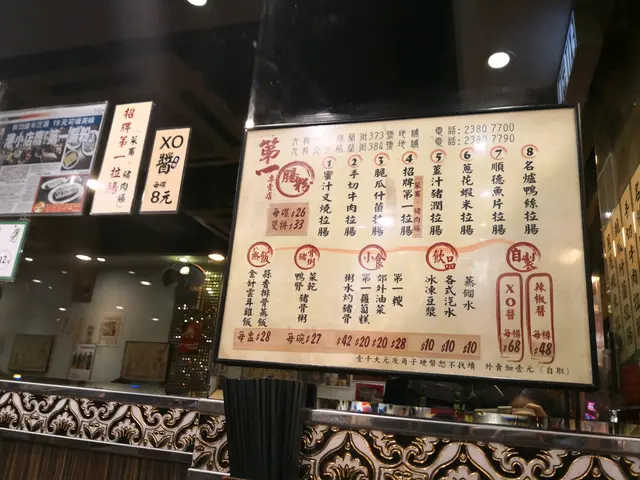 招牌第一拉腸
(菜脯、豬肉腸)
XO醬
每碟
8元
第一腸粉
專賣店
每碟$26
雙拼$33
街373號地舖
街384號地舖
電話:2380 7700
電話:2380 7790
1 蜜汁叉燒拉腸
2 手切牛肉拉腸
3 脆瓜什菌拉腸
4 招牌第一拉腸
5 薑汁豬潤拉腸
6 蔥花蝦米拉腸
7 順德魚片拉腸
8 名爐鴨絲拉腸
蒸飯
蒜香排骨蒸飯
金針雲耳雞飯
每盅$28
豬骨粥
菜乾豬骨粥
鴨腎
每碗$27
小食
第一糭
郊外油菜
第一蘿蔔糕
粥水灼豬骨
$42 $20 $20 $28
飲品
蒸餾水
各式汽水
冰凍豆漿
$10 $10 $10
自製
XO醬 每樽$68
辣椒醬 每樽$48
壹千大元及角子硬幣恕不找續
外賣加壹元(自取)